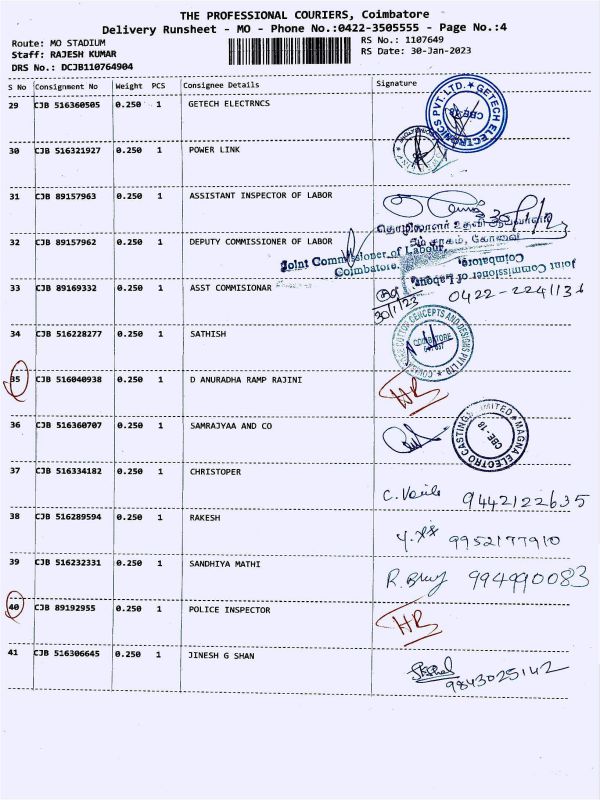 THE PROFESSIONAL COURIERS, Coimbatore
Delivery Runsheet - MO - Phone No.:0422-3505555 - Page No.:4
Route: MO STADIUM
RS No.: 1107649
Staff: RAJESH KUMAR
RS Date: 30-Jan-2023
DRS No.: DCJB110764904
S No Consignment No Weight PCS Consignee Details Signature
29 CJB 516360505 0.250 1 GETECH ELECTRNCS
GETECH ELECTRONICS PVT.LTD. ★ CBE-18
30 CJB 516321927 0.250 1 POWER LINK
31 CJB 89157963 0.250 1 ASSISTANT INSPECTOR OF LABOR
30/1/23
தொழிலாளர் உதவி ஆய்வாளர்
32 CJB 89157962 0.250 1 DEPUTY COMMISSIONER OF LABOR
கோவை
Joint Commissioner of Labour,
Coimbatore.
Joint Commissioner of Labour,
Coimbatore.
33 CJB 89169332 0.250 1 ASST COMMISIONAR
30/1/23 0422-2241136
34 CJB 516228277 0.250 1 SATHISH
COTTON CONCEPTS AND DESIGNS PVT LTD ★ COIMBATORE
35 CJB 516040938 0.250 1 D ANURADHA RAMP RAJINI
HR
36 CJB 516360707 0.250 1 SAMRAJYAA AND CO
MAGNA ELECTRO CASTINGS LIMITED ★ CBE - 18
37 CJB 516334182 0.250 1 CHRISTOPER
9442122635
38 CJB 516289594 0.250 1 RAKESH
9952177910
39 CJB 516232331 0.250 1 SANDHIYA MATHI
994990083
40 CJB 89192955 0.250 1 POLICE INSPECTOR
HR
41 CJB 516306645 0.250 1 JINESH G SHAN
9843025142